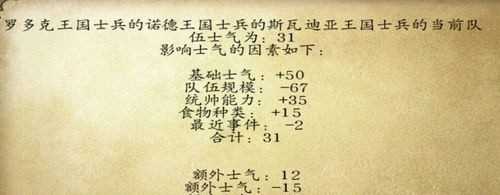 罗多克王国士兵的诺德王国士兵的斯瓦迪亚王国士兵的当前队
伍士气为：31
影响士气的因素如下：
基础士气：+50
队伍规模：-67
统帅能力：+35
食物种类：+15
最近事件：-2
合计：31
额外士气：12
额外士气：-15